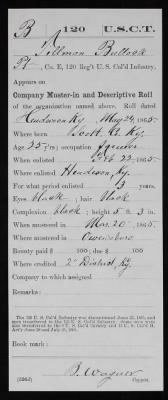 B | 120 | U.S.C.T.
Tillman Bullock
Pt, Co. E, 120 Reg't U. S. Col'd Infantry.
Appears on
Company Muster-in and Descriptive Roll
of the organization named above. Roll dated
Henderson Ky. May 24, 1865.
Where born Scott Co. Ky.
Age 25 y'rs; occupation Farmer
When enlisted Feb 22, 1865.
Where enlisted Henderson, Ky.
For what period enlisted 3 years.
Eyes black; hair black
Complexion black; height 5 ft. 3 in.
When mustered in Mar. 20, 1865
Where mustered in Owensboro
Bounty paid $ 100; due $ 100
Where credited 2" District Ky.
Company to which assigned
Remarks:
Book mark:
B. Wagner
(356d) Copyist.